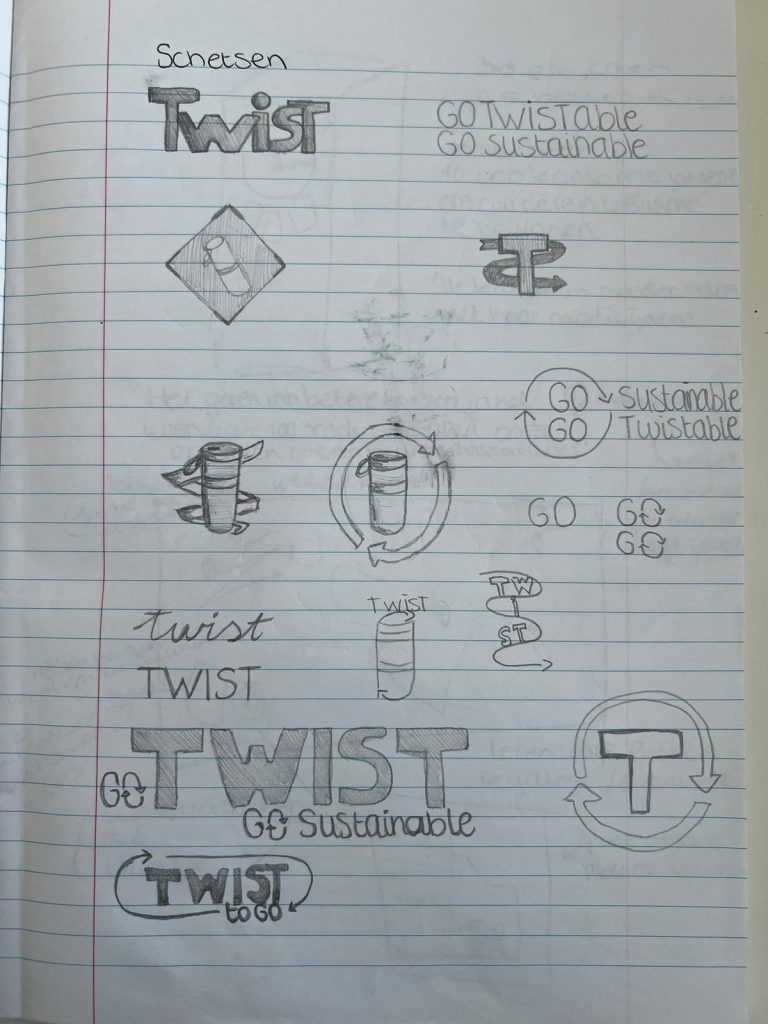 Schetsen
TWiST
GO TWiSTable
GO Sustainable
T
GO Sustainable
GO Twistable
GO GO
GO
twist
TWIST
TWIST
TW
I
ST
GO TWIST
GO Sustainable
T
TWIST
to GO